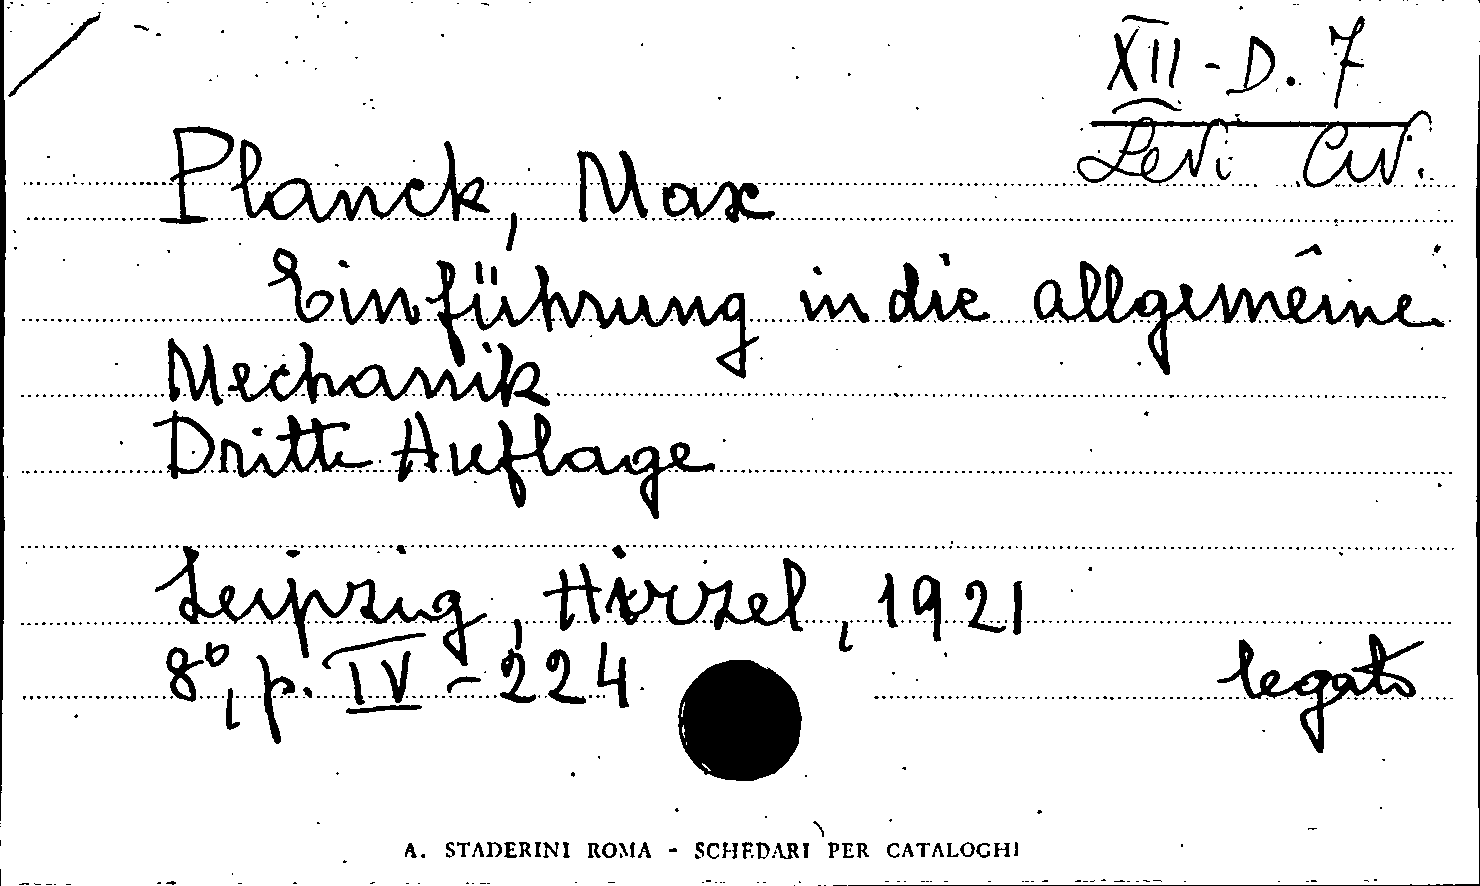 XII - D. 7
Levi Civ.
Planck, Max
Einführung in die allgemeine
Mechanik
Dritte Auflage
Leipzig, Hirzel, 1921
8°, p. IV - 224
legato
A. STADERINI ROMA - SCHEDARI PER CATALOGHI